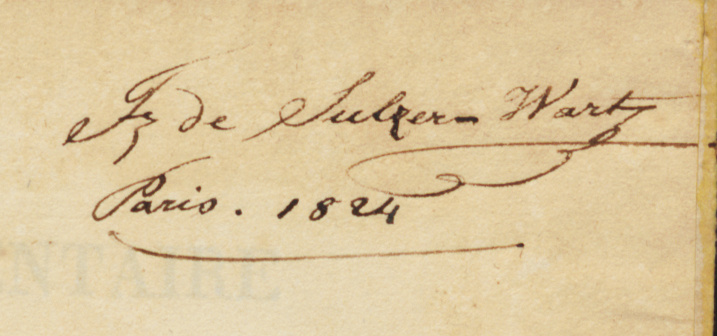 Fz de Sulzer-Wart
Paris. 1824
NTAIRE